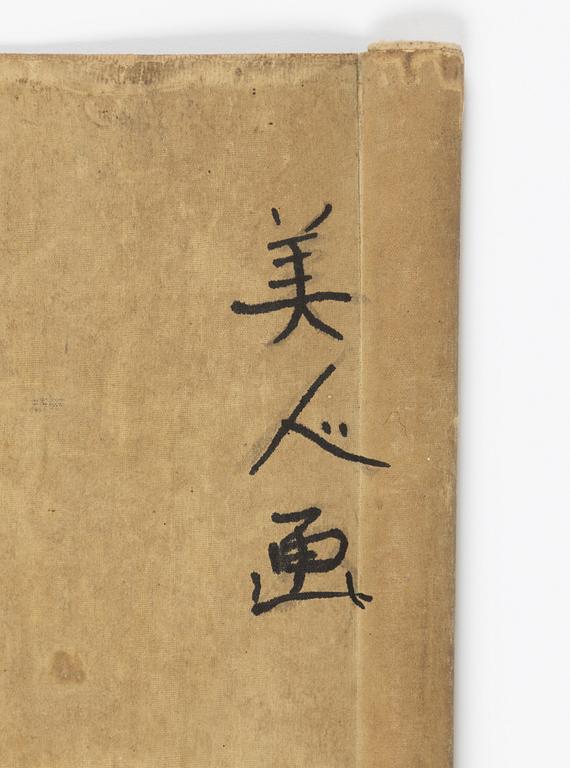 美人画